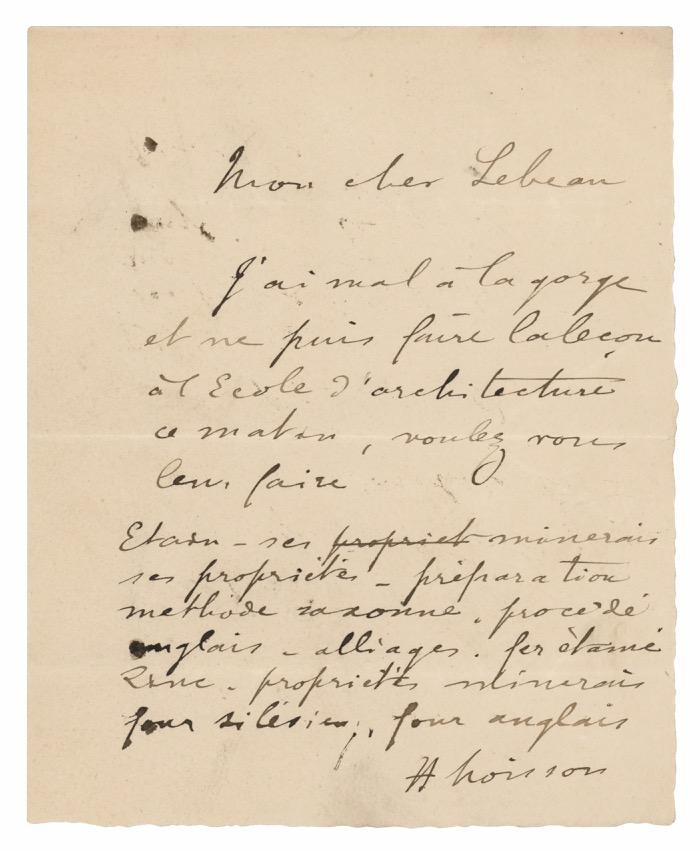 Mon cher Lebeau
J'ai mal à la gorge
et ne puis faire la leçon
à l'Ecole d'architecture
ce matin, voulez vous
leur faire
Etain - ses propriet minerais
ses propriétés - préparation
méthode saxonne. procédé
anglais - alliages. fer étamé
Zinc - propriétés minerais
four silésien, four anglais
H Moisson